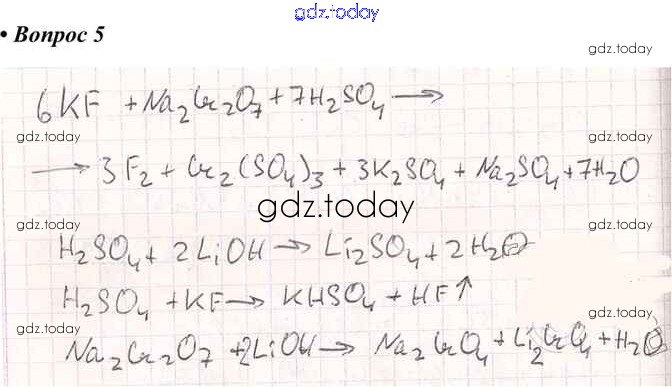 gdz.today
• Вопрос 5
gdz.today
6KF + Na₂Cr₂O₇ + 7H₂SO₄ ⟶
gdz.today
gdz.today
⟶ 3F₂ + Cr₂(SO₄)₃ + 3K₂SO₄ + Na₂SO₄ + 7H₂O
gdz.today
gdz.today
gdz.today
H₂SO₄ + 2LiOH → Li₂SO₄ + 2H₂O
H₂SO₄ + KF → KHSO₄ + HF↑
gdz.today
gdz.today
Na₂Cr₂O₇ + 2LiOH → Na₂CrO₄ + Li₂CrO₄ + H₂O
gdz.today
gdz.today